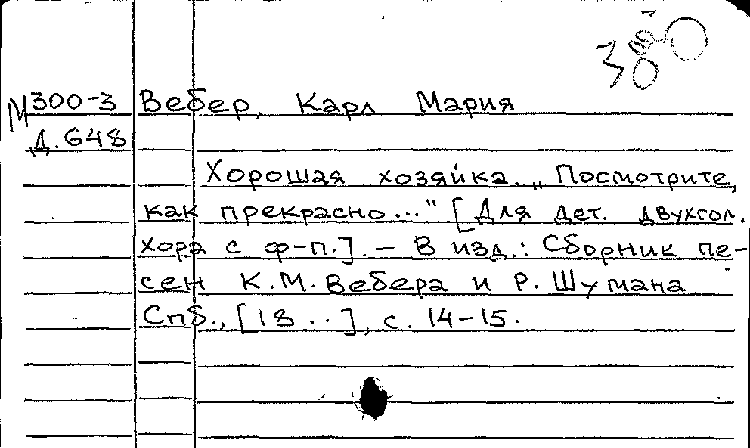 М300-3 Вебер, Карл Мария
Д.648
Хорошая хозяйка. „Посмотрите,
как прекрасно..." [Для дет. двухгол.
хора с ф-п.]. - В изд.: Сборник пе-
сен К.М. Вебера и Р. Шумана
Спб., [18 ..], с. 14-15.